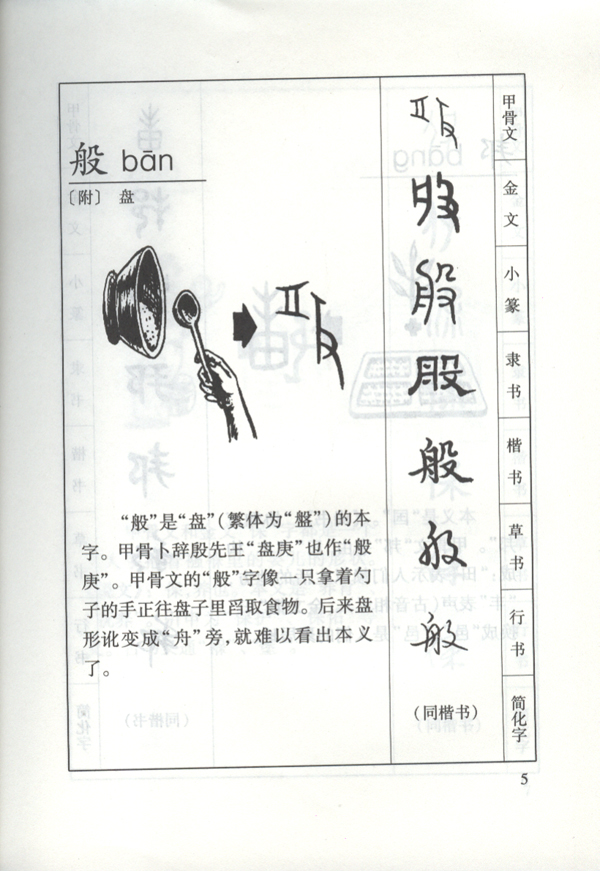 般 bān
〔附〕 盘
“般”是“盘”（繁体为“盤”）的本
字。甲骨卜辞殷先王“盘庚”也作“般
庚”。甲骨文的“般”字像一只拿着勺
子的手正往盘子里舀取食物。后来盘
形讹变成“舟”旁，就难以看出本义
了。
甲骨文
金文
小篆
隶书
般
楷书
般
草书
般
行书
（同楷书）
简化字
5